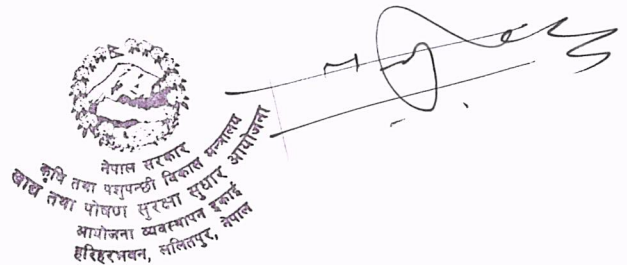 नेपाल सरकार
कृषि तथा पशुपन्छी विकास मन्त्रालय
खाद्य तथा पोषण सुरक्षा सुधार आयोजना
आयोजना व्यवस्थापन इकाई
हरिहरभवन, ललितपुर, नेपाल